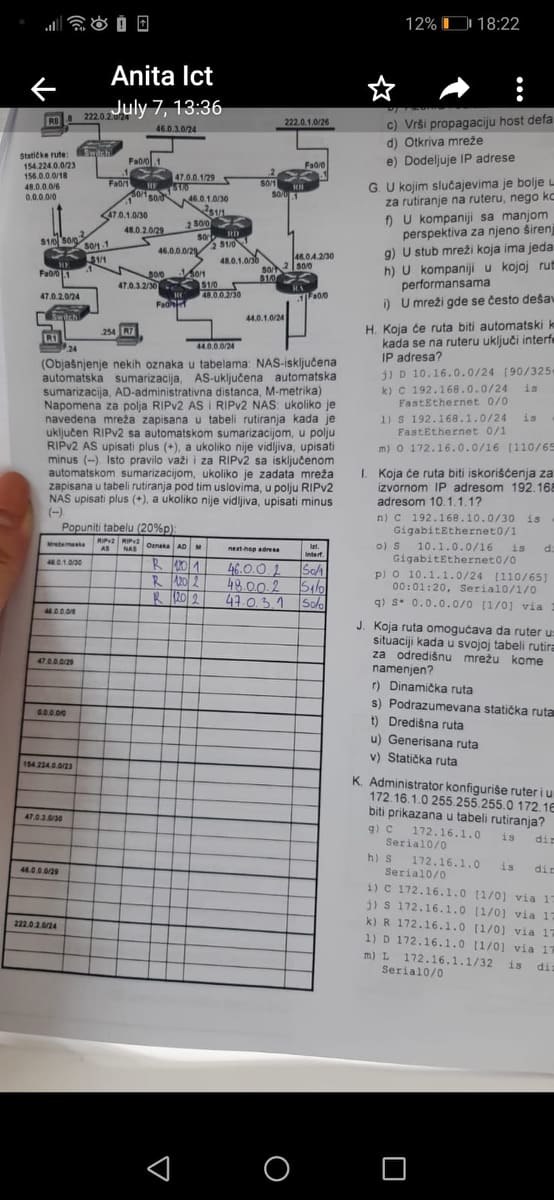 12% 18:22
Anita Ict
July 7, 13:36
R8
.8
222.0.2.0/24
Switch
46.0.3.0/24
222.0.1.0/26
Statičke rute:
154.224.0.0/23
156.0.0.0/18
48.0.0.0/6
0.0.0.0/0
Fa0/0 .1
Fa0/1
47.0.0.1/29
Fa0/0
46.0.1.0/30
47.0.1.0/30
48.0.2.0/29
46.0.0.0/29
48.0.1.0/30
46.0.4.2/30
Fa0/0 .1
47.0.3.2/30
48.0.0.2/30
47.0.2.0/24
Switch
R1
.24
.254 R7
44.0.0.0/24
44.0.1.0/24
.1 Fa0/0
(Objašnjenje nekih oznaka u tabelama: NAS-isključena
automatska sumarizacija, AS-uključena automatska
sumarizacija, AD-administrativna distanca, M-metrika)
Napomena za polja RIPv2 AS i RIPv2 NAS: ukoliko je
navedena mreža zapisana u tabeli rutiranja kada je
uključen RIPv2 sa automatskom sumarizacijom, u polju
RIPv2 AS upisati plus (+), a ukoliko nije vidljiva, upisati
minus (–). Isto pravilo važi i za RIPv2 sa isključenom
automatskom sumarizacijom, ukoliko je zadata mreža
zapisana u tabeli rutiranja pod tim uslovima, u polju RIPv2
NAS upisati plus (+), a ukoliko nije vidljiva, upisati minus
(–).
Popuniti tabelu (20%p):
Mreža/maska RIPv2 AS RIPv2 NAS Oznaka AD M next-hop adresa Izl. interf.
48.0.1.0/30 R 120 1 46.0.0.2 S0/1
R 120 2 48.0.0.2 S1/0
R 120 2 47.0.3.1 S0/0
47.0.0.0/29
0.0.0.0/0
154.224.0.0/23
47.0.3.0/30
46.0.0.0/29
222.0.2.0/24
c) Vrši propagaciju host defa
d) Otkriva mreže
e) Dodeljuje IP adrese
G. U kojim slučajevima je bolje
za rutiranje na ruteru, nego
f) U kompaniji sa manjom
perspektiva za njeno širenj
g) U stub mreži koja ima jeda
h) U kompaniji u kojoj rut
performansama
i) U mreži gde se često deša
H. Koja će ruta biti automatski
kada se na ruteru uključi interf
IP adresa?
j) D 10.16.0.0/24 [90/325
k) C 192.168.0.0/24 is
FastEthernet 0/0
l) S 192.168.1.0/24 is
FastEthernet 0/1
m) O 172.16.0.0/16 [110/65
I. Koja će ruta biti iskorišćenja za
izvornom IP adresom 192.168
adresom 10.1.1.1?
n) C 192.168.10.0/30 is
GigabitEthernet0/1
o) S 10.1.0.0/16 is d
GigabitEthernet0/0
p) O 10.1.1.0/24 [110/65]
00:01:20, Serial0/1/0
q) S* 0.0.0.0/0 [1/0] via
J. Koja ruta omogućava da ruter
situaciji kada u svojoj tabeli rutira
za odredišnu mrežu kome
namenjen?
r) Dinamička ruta
s) Podrazumevana statička ruta
t) Dredišna ruta
u) Generisana ruta
v) Statička ruta
K. Administrator konfiguriše ruter i u
172.16.1.0 255.255.255.0 172.16
biti prikazana u tabeli rutiranja?
g) C 172.16.1.0 is dir
Serial0/0
h) S 172.16.1.0 is dir
Serial0/0
i) C 172.16.1.0 [1/0] via 17
j) S 172.16.1.0 [1/0] via 17
k) R 172.16.1.0 [1/0] via 17
l) D 172.16.1.0 [1/0] via 17
m) L 172.16.1.1/32 is di
Serial0/0